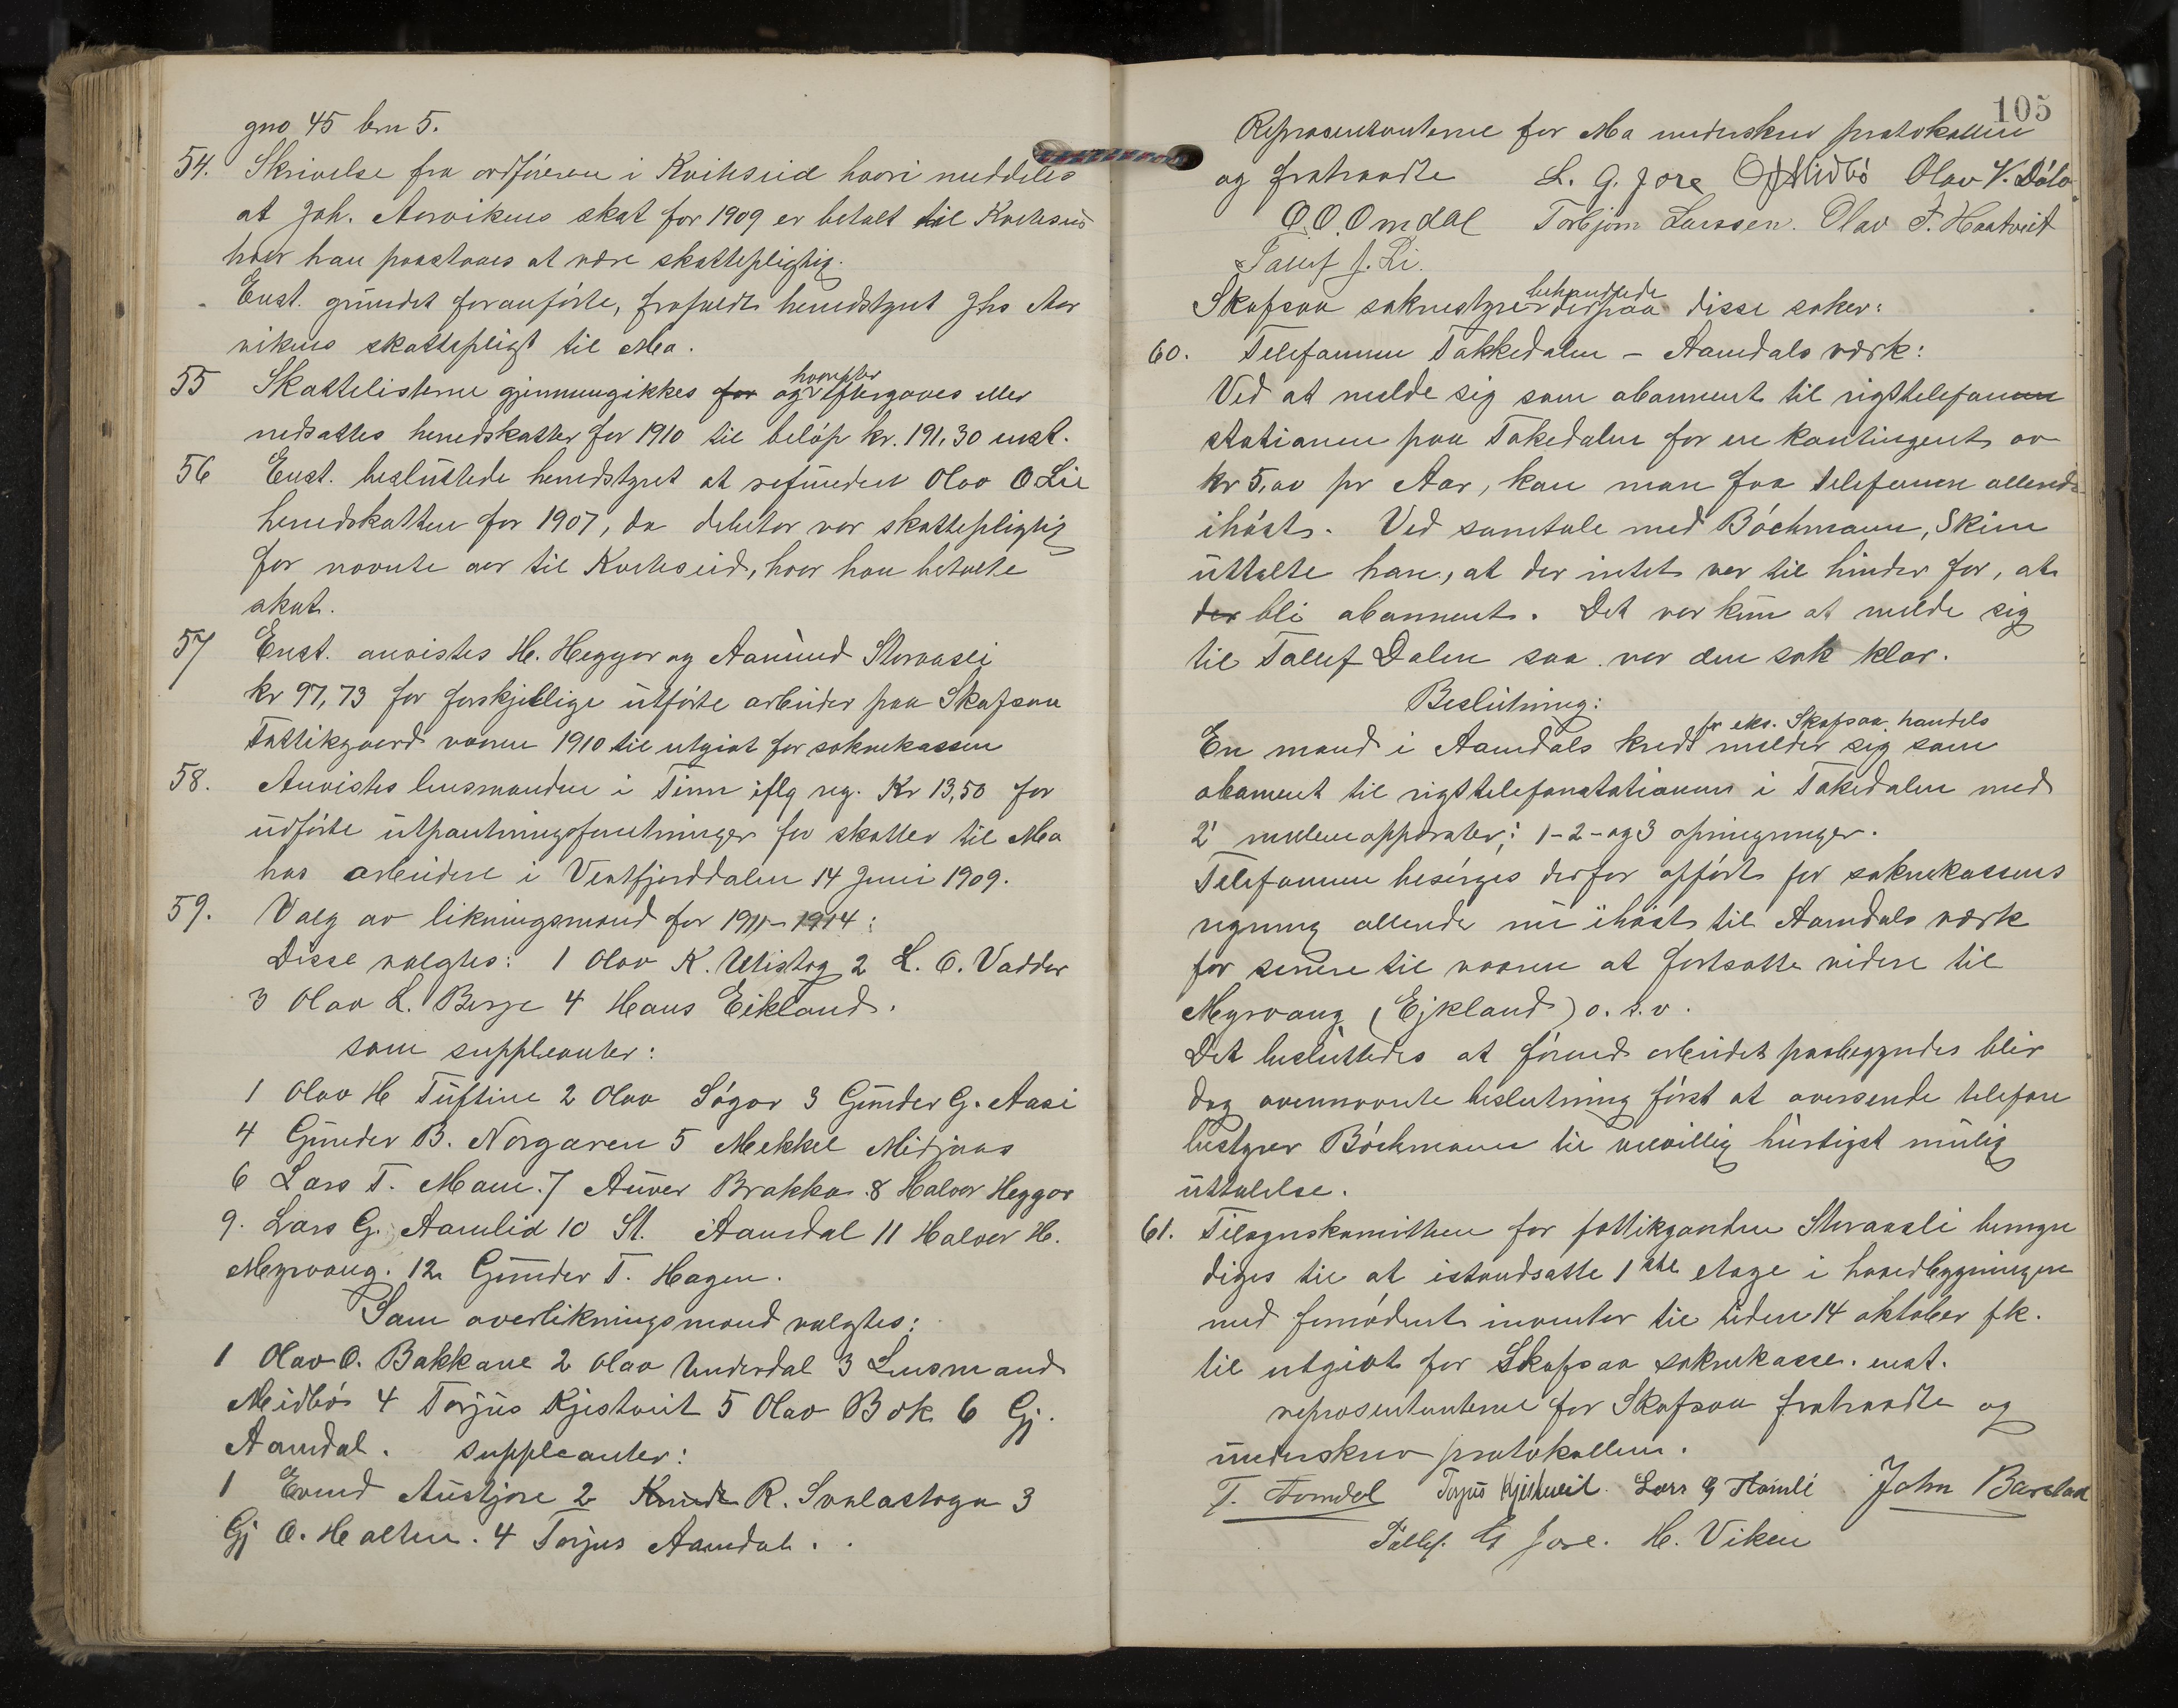 gno 45 brn 5.
54. Skrivelse fra ordføreren i Kviteseid hvori meddeles
at Joh. Aarvikens skat for 1909 er betalt til Kviteseid
hvor han paastaaes at være skattepligtig.
Enst. grundet foranførte, frafaldt herredstyret Jhs Aar
vikens skattepligt til Mo.
55 Skattelisterne gjennemgikkes for og hvorefter eftergaves eller
nedsattes herredskatter for 1910 til beløp kr. 191,30 enst.
56 Enst. besluttede herredstyret at refundere Olav O Lie
herredskatten for 1907, da debitor var skattepligtig
for nævnte aar til Kviteseid, hvor han betalte
skat.
57 Enst. anvistes H. Heggor og Aamund Storaasli
kr 97,73 for forskjellige utførte arbeider paa Skafsaa
Fattikgaard vaaren 1910 til utgivt for soknekassen
58. Anvistes lensmanden i Tinn iflg reg. Kr 13,50 for
udførte utpantningsforretninger for skatter til Mo
hos arbeidere i Vestfjorddalen 14 Juni 1909.
59. Valg av likningsmænd for 1911-1914:
Disse valgtes: 1 Olav K. Utistog 2 L. O. Vadder
3 Olav L. Berge 4 Hans Eikland.
som suppleanter:
1 Olav H Tuftine 2 Olav Søgar 3 Gunder G. Aasi
4 Gunder B. Norgaren 5 Mekkel Midjaas
6 Lars T. Moen. 7 Auver Brakka. 8 Halvor Heggor
9. Lars G. Aamlid 10 St. Aamdal 11 Halvor H.
Myrvang. 12 Gunder T. Hagen.
Som overlikningsmænd valgtes:
1 Olav O. Bakkane 2 Olav Underdal 3 Lensmand
Midbø 4 Torjus Kjistveit 5 Olav Bøk 6 Gj.
Aamdal. suppleanter:
1 Evend Austjore 2 R. Svalastoga 3
Gj O. Holten. 4 Torjus Aamdal.
105
Repræsentanterne for Mo underskrev protokollen
og fratraadte L. G. Jore O J Midbø Olav V. Dølo
O. O. Omdal Torbjørn Larssen. Olav F. Haatveit
Tallef J. Li.
Skafsaa soknestyre behandlede derpaa disse saker:
60. Telefonen Tokkedalen - Aamdals værk:
Ved at melde sig som abonnent til rigstelefonen
stationen paa Tokedalen for en kontingent av
kr 5,00 pr Aar, kan man faa telefonen allerede
ihøst. Ved samtale med Bøchmann, Skien
uttalte han, at der intet var til hinder for, at
der bli abonnent. Det var kun at melde sig
til Tallef Dalen saa var den sak klar.
Beslutning:
En mand i Aamdals kreds for eks. Skafsaa handels melder sig som
abonnent til rigstelefonstationen i Tokedalen med
2 mellemapparater; 1-2-og 3 opringninger.
Telefonen besørges derfor opført for soknekassens
regning allerede nu ihøst til Aamdals værk
for senere til vaaren at fortsætte videre til
Myrvang (Ejkland) o. s. v.
Det besluttedes at førend arbeidet paabegyndes blir
dog ovennævnte beslutning først at oversende telefon
bestyrer Bøchmann til velvillig hurtigst mulig
uttalelse.
61. Tilsynskomitteen for fattikgaarden Storaasli bemyn
diges til at istandsætte 1ste etage i hovedbygningen
med fornødent inventar til tiden 14 oktober fk.
til utgivt for Skafsaa soknekasse. enst.
repræsentanterne for Skafsaa fratraadte og
underskrev protokollen.
T. Aamdal Torjus Kjistveit Lars G Aamli John Barstad
Tallef. G Jore. H. Viken